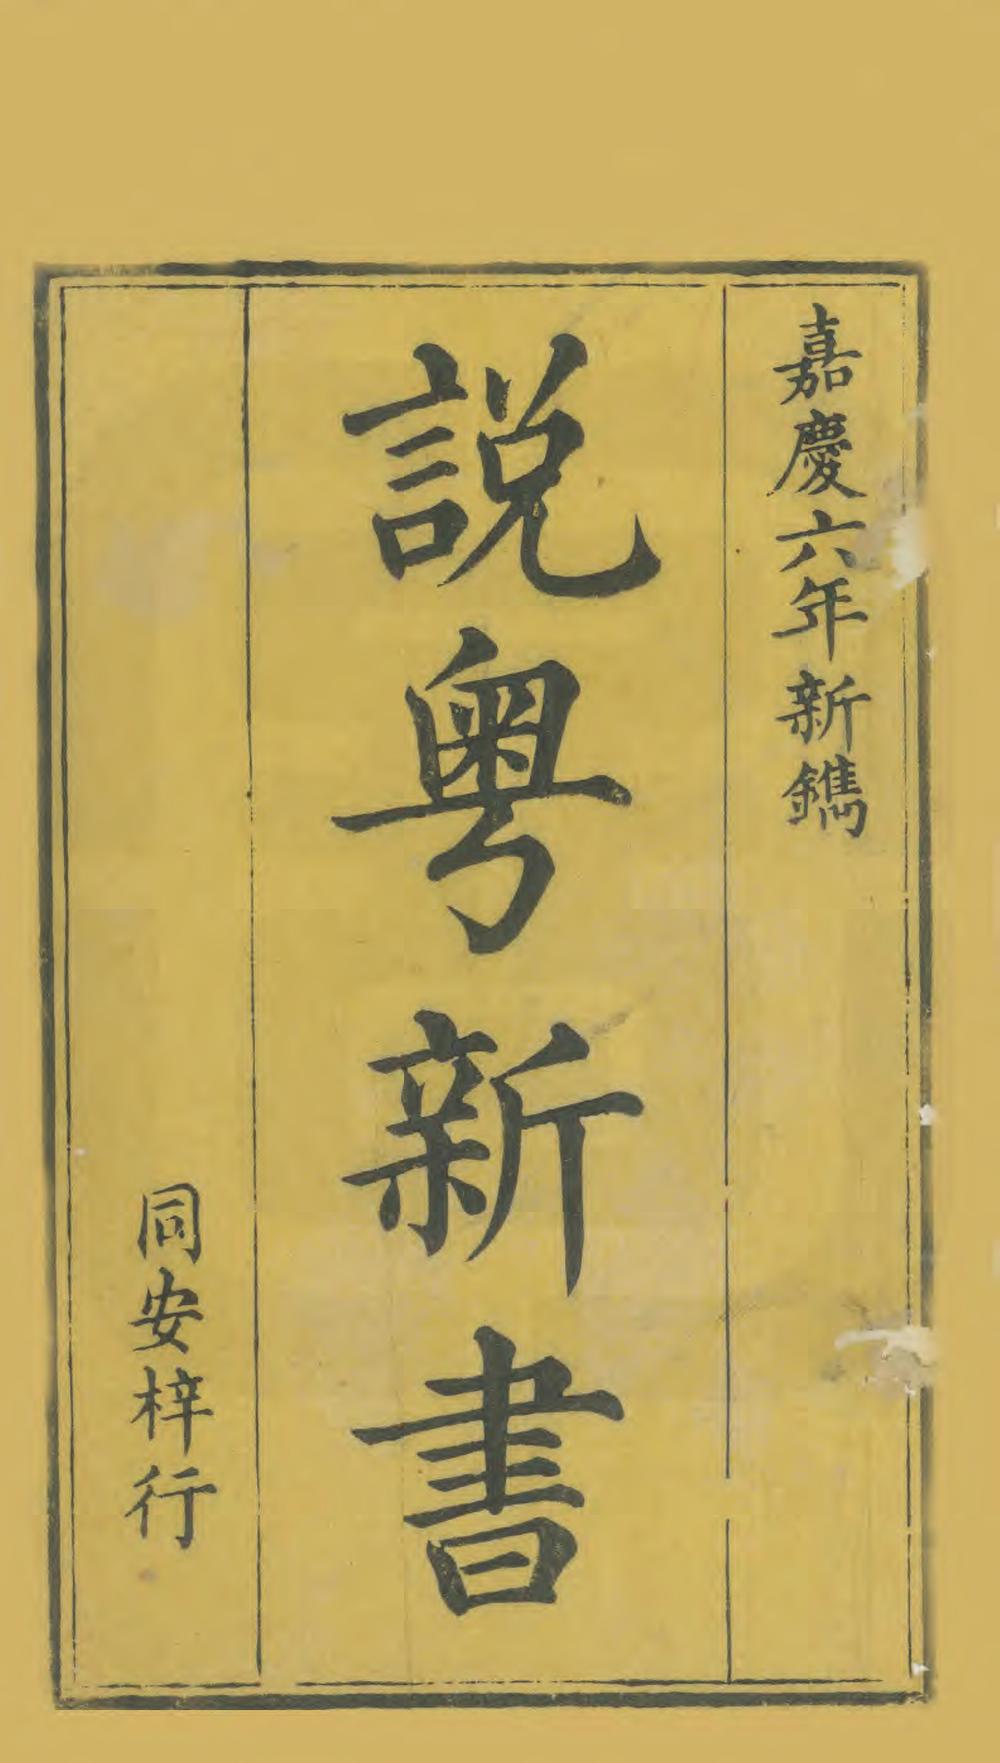 嘉慶六年新鐫
説粤新書
同安梓行